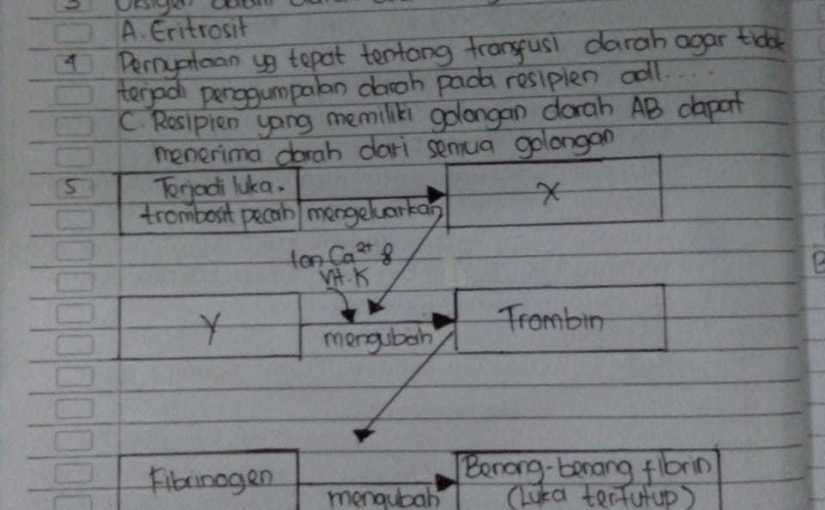 3
A. Eritrosit
4 Pernyataan yg tepat tentang transfusi darah agar tidak
terjadi penggumpalan darah pada resipien adl....
C. Resipien yang memiliki golongan darah AB dapat
menerima darah dari semua golongan
5 Terjadi luka.
trombosit pecah mengeluarkan X
Ion Ca²⁺ &
Vit. K
Y mengubah Trombin
Fibrinogen mengubah Benang-benang fibrin
(Luka tertutup)